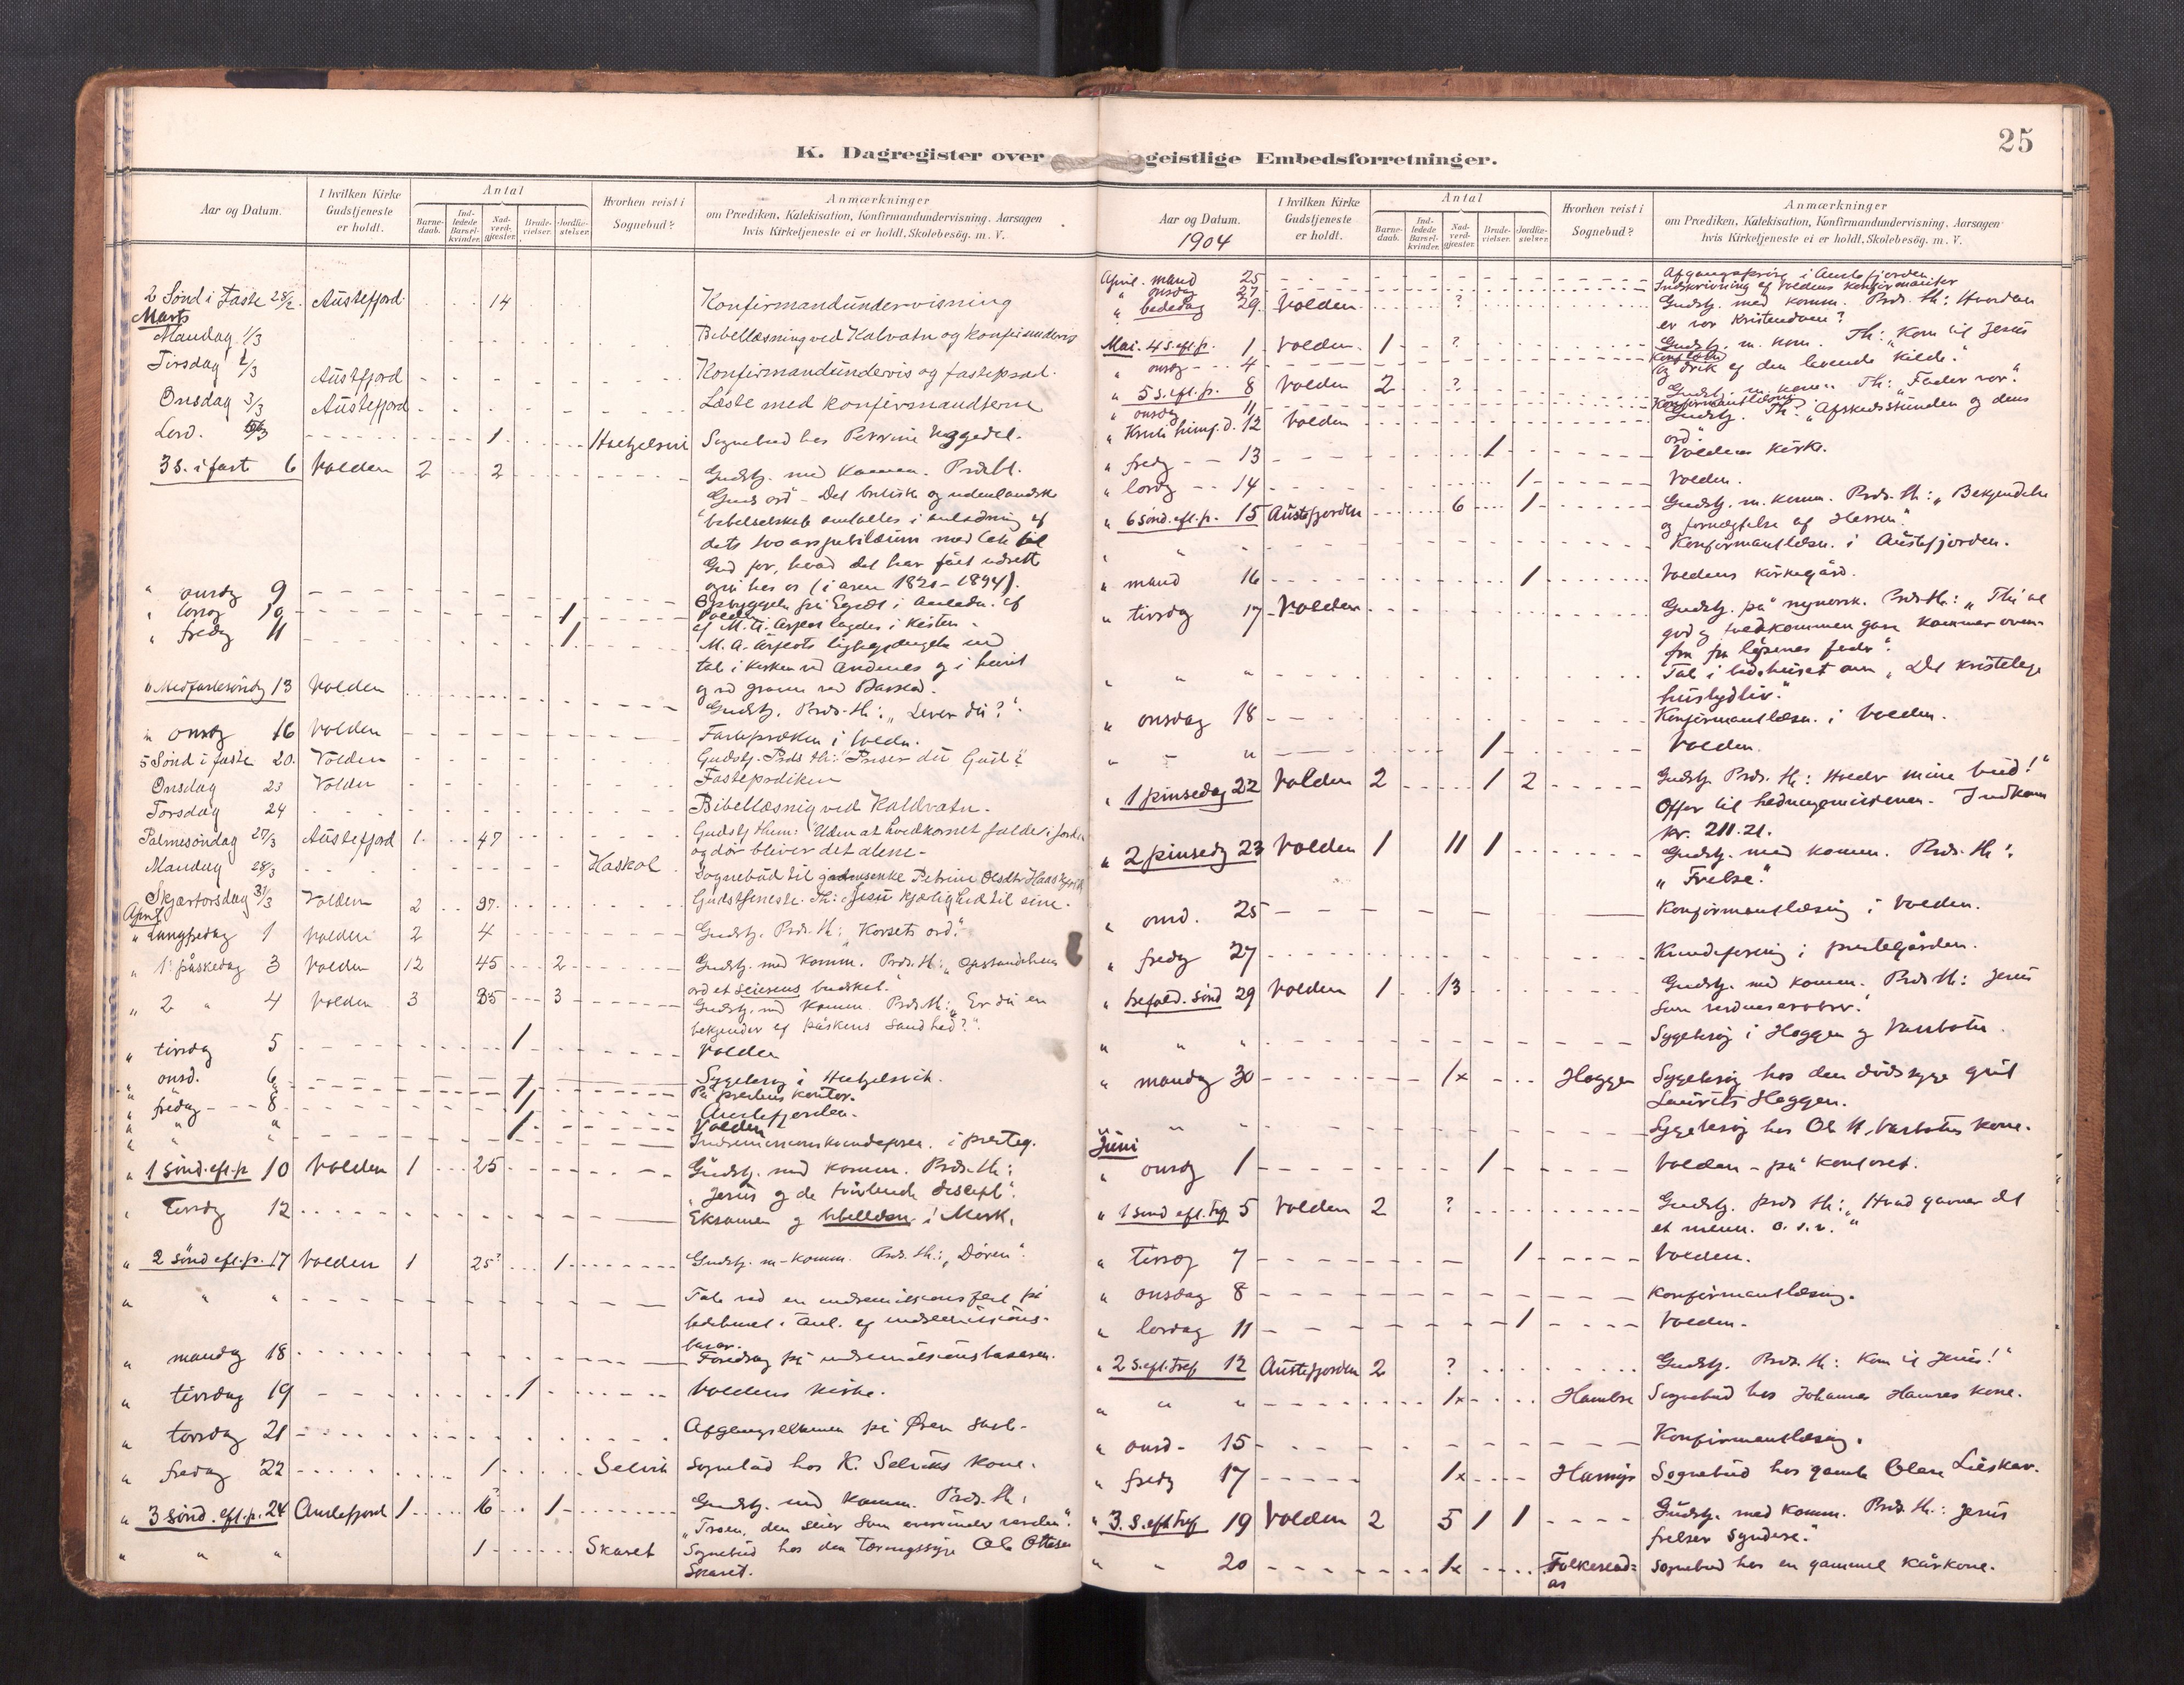 25
K. Dagregister over geistlige Embedsforretninger.
Aar og Datum.
I hvilken Kirke Gudstjeneste er holdt.
Antal
Barnedaab.
Indledede Barselkvinder.
Nadverdgjæster.
Brudevielser.
Jordfæstelser.
Hvorhen reist i Sognebud?
Anmærkninger
om Prædiken, Katekisation, Konfirmandundervisning, Aarsagen
hvis Kirketjeneste ei er holdt, Skolebesøg. m. V.
2 Sønd i Faste 28/2. Austefjord 14 Konfirmandundervisning
Marts
Mandag 1/3 Bibellæsning ved Kalvatn og Konfirmundervis
Tirsdag 2/3 Austfjord Konfirmandundervis og fastepræd.
Onsdag 3/3 Austefjord Læste med konfirmandterne
Lørd. 1 Sognebud hos
3 S. i fast 6 Volden 2 2 Gudstj. med Komm.
Guds ord - Det britiske og udenlandske
bibelselskab omtaltes i anledning af
dets 100 årsjubilæum med tak til
Gud for, hvad det har fået udrette
også hos os
" onsdg 9
" torsdg 10 1
af M. A. Aarflot lagdes i kisten
" fredg 11 1 M. A. Aarflots
tale i kirken ved Andenes og i huset
og ved graven ved
" Midfastesøndg 13 Volden Gudstj. Præd. th: "Lever du?"
" onsdg 16 Volden Fasteprædiken i Volden.
5 Sønd i faste 20. Volden Gudstj. Præds th: "Priser du Gud?"
Onsdag 23 Volden Fasteprædiken
Torsdag 24 Bibellæsnig ved Kaldvatn.
Palmesøndag 27/3 Austefjord 1 47 Gudstj them: "Uden at hvedkornet falder i jorden
og dør bliver det alene-
Mandag 28/3 Haskol Sognebud til Petrine Olsdtr
Skjærtorsdag 31/3 Volden 2 37. Gudstjeneste. Th: Jesu kjærlighed til sine.
April
" Langfredag 1 Volden 2 4 Gudstj. Præd. th: "Korsets ord."
" 1 påskedag 3 Volden 12 45 2 Gudstj. med Komm. Præd. th: "Opstandelsens
ord et seierens budskab."
" 2 " 4 Volden 3 35 3 Gudstj. med Komm. Præd. th: "Er du en
bekjender af påskens sandhed?".
" tirsdg 5 1 Volden
" onsd. 6 1 Sygebesøg i
På prestens kontor.
" fredag 8 1 Austefjorden.
" " " 1 Volden
" " " i presteg.
" 1 sønd. eft. p 10 Volden 1 25 Gudstj. med komm. Præd. th:
"Jesus og de tvivlende disciple".
" Tirsdg 12 Eksamen og bibellæsn. i Mork.
" 2 sønd eft. p. 17 Volden 1 25? 1 Gudstj. m. Komm. Præd. th: "Døren".
" " " Tale ved en indremissionsfest på
bedehuset i anl. af indremissions-
basar.
" mandg 18 Foredrag på indremissionsbasaren.
" tirsdag 19 1 Voldens kirke.
" torsdag 21 Afgangseksamen på Øren skole.
" fredag 22 1 Selvik Sognebud hos K. Selviks kone.
" 3 sønd. eft. p. 24 Austefjord 1 16 1 Gudstj. med komm. Præd. th:
"Troen, den seier som overvinder verden".
" " " 1 Skaret Sognebud hos den tæringssyge Ole Ottesen
Skaret.
Aar og Datum.
1904
I hvilken Kirke Gudstjeneste er holdt.
Antal
Barnedaab.
Indledede Barselkvinder.
Nadverdgjæster.
Brudevielser.
Jordfæstelser.
Hvorhen reist i Sognebud?
Anmærkninger
om Prædiken, Katekisation, Konfirmandundervisning, Aarsagen
hvis Kirketjeneste ei er holdt, Skolebesøg. m. V.
April. mand 25 i Austefjorden.
" onsdag 27 Indskrivning af Voldens konfirmanter
" bededag 29. Volden ? Gudstj. med komm. Præd. th: Hvordan
er vor Kristendom?
Mai. 4 S. eft. p. 1 Volden. 1 ? Gudstj. m. kom. Th: "Kom til Jesus
og drik af den levende kilde."
" onsdg 4
" 5 S. eft. p. 8 Volden 2 ? Gudstj. m. komm. Th: "Fader vor."
" onsdag 11 Konfirmantlæsnig
" Kristi himf. d. 12 Volden Gudstj. Th: "Afskedsstunden og dens
ord."
" fredg 13 1 Voldens kirke.
" lørdg 14 1 Volden.
" 6 sønd. eft. p. 15 Austefjorden 6 1 Gudstj. m. komm. Præd. th: "Bekjendelse
og fornægtelse af Herren."
" " " Konfirmantlæsn. i Austefjorden.
" mand 16 1 Voldens kirkegård.
" tirsdg 17 Volden Gudstj. på nynorsk. Præd. th: "Thi al
god og fuldkommen gave kommer oven-
fra fra lysenes fader".
" " " Tale i bedehuset om "Det kristelege
huslydliv."
" onsdag 18 Konfirmantlæsn. i Volden.
" " " 1 Volden.
" 1 pinsedag 22 Volden 2 1 2 Gudstj. Præd. th: Holder mine bud!"
Offer til hedningemissionen. Indkom
kr. 211.21.
" 2 pinsedg 23 Volden 1 11 1 Gudstj. med komm. Præd. th:
"Frelse."
" onsd. 25 Konfirmantlæsnig i Volden.
" fredg 27 Kvindeforenig i prestegården.
" trefold. sønd 29 Volden 1 13 Gudstj. med komm. Præd. th: Jesus
som verdenserobrer."
" " " Sygebesøg i Heggen og
" mandg 30 1x Heggen Sygebesøg hos den dødssyge gut
Laurits Heggen.
" " " Sygebesøg hos Ole kone.
Juni
" onsdg 1 1 Volden - på kontoret.
" 1 sønd eft. tref 5 Volden 2 ? Gudstj. præd th: "Hvad gavner det
et menn. o.s.v."
" Tirsdg 7 1 Volden.
" onsdag 8 Konfirmantlæsnig.
" lørdag 11 1 Volden.
" 2 S. eft. tref 12 Austefjorden 2 ? Gudstj. Præd. th: Kom til Jesus!"
" " " 1x Sognebud hos Johannes kone.
" onsd. 15 Konfirmantlæsnig.
" fredg 17 1x Sognebud hos gamle
" 3. S. eft tref 19 Volden 2 5 1 1 Gudstj. med Komm. Præd. th: Jesus
frelser syndere."
" " 20 1x Sognebud hos en gammel kårkone.